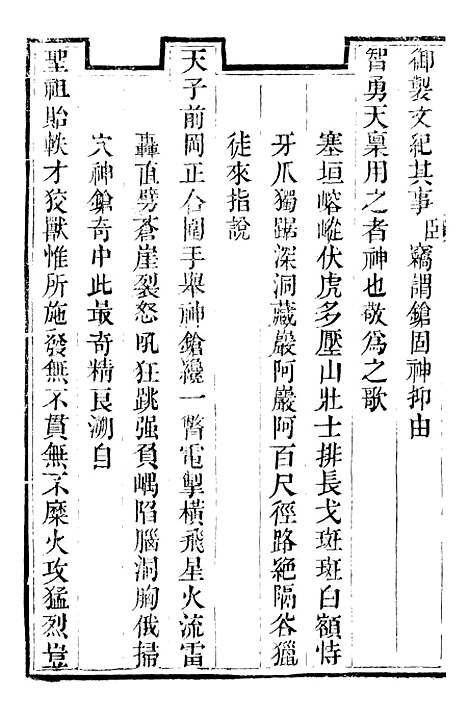 御製文紀其事臣竊謂鎗固神抑由
智勇天稟用之者神也敬爲之歌
塞垣嵱嵷伏虎多壓山壯士排長戈斑斑白額恃
牙爪獨踞深洞藏巖阿巖阿百尺徑路絶隔谷獵
徒來指說
天子前岡正合圍手舉神鎗纔一瞥電掣橫飛星火流雷
轟直劈蒼崖裂怒吼狂跳强負嵎陷腦洞胸俄掃
穴神鎗奇中此最奇精良溯自
聖祖貽軼才狡獸惟所施發無不貫無不糜火攻猛烈豈